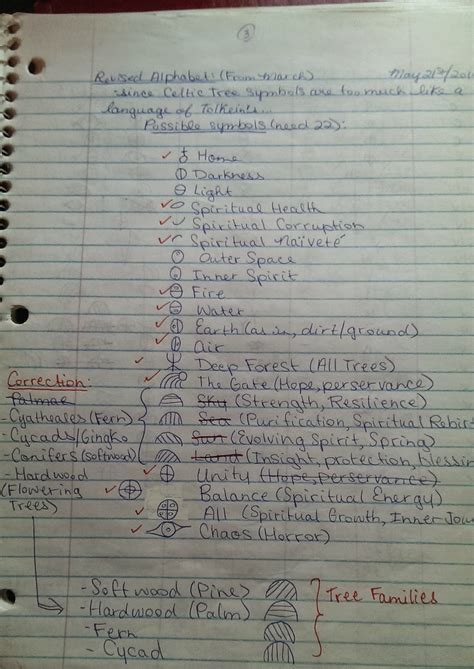 3
Revised Alphabet: (From March) May 21st/20
- since Celtic Tree symbols are too much like a
language of Tolkeins...
Possible symbols (need 22):
✓ Home
Darkness
Light
✓ Spiritual Health
✓ Spiritual Corruption
✓ Spiritual Naïveté
Outer Space
Inner Spirit
✓ Fire
✓ Water
✓ Earth (as in, dirt/ground)
✓ Air
✓ Deep Forest (All Trees)
Correction: ✓ The Gate (Hope, perservance)
Palmae Sky (Strength, Resilience)
- Cyatheales (Fern) Sea (Purification, Spiritual Rebir
- Cycads/Gingko Sun (Evolving Spirit, Spring)
- Conifers (softwood) Land (Insight, protection, blessin
- Hardwood ✓ Unity (Hope, perservance)
(Flowering Trees) ✓ Balance (Spiritual Energy)
✓ All (Spiritual Growth, Inner Jou
✓ Chaos (Horror)
- Softwood (Pine)
- Hardwood (Palm)
- Fern
- Cycad
Tree Families